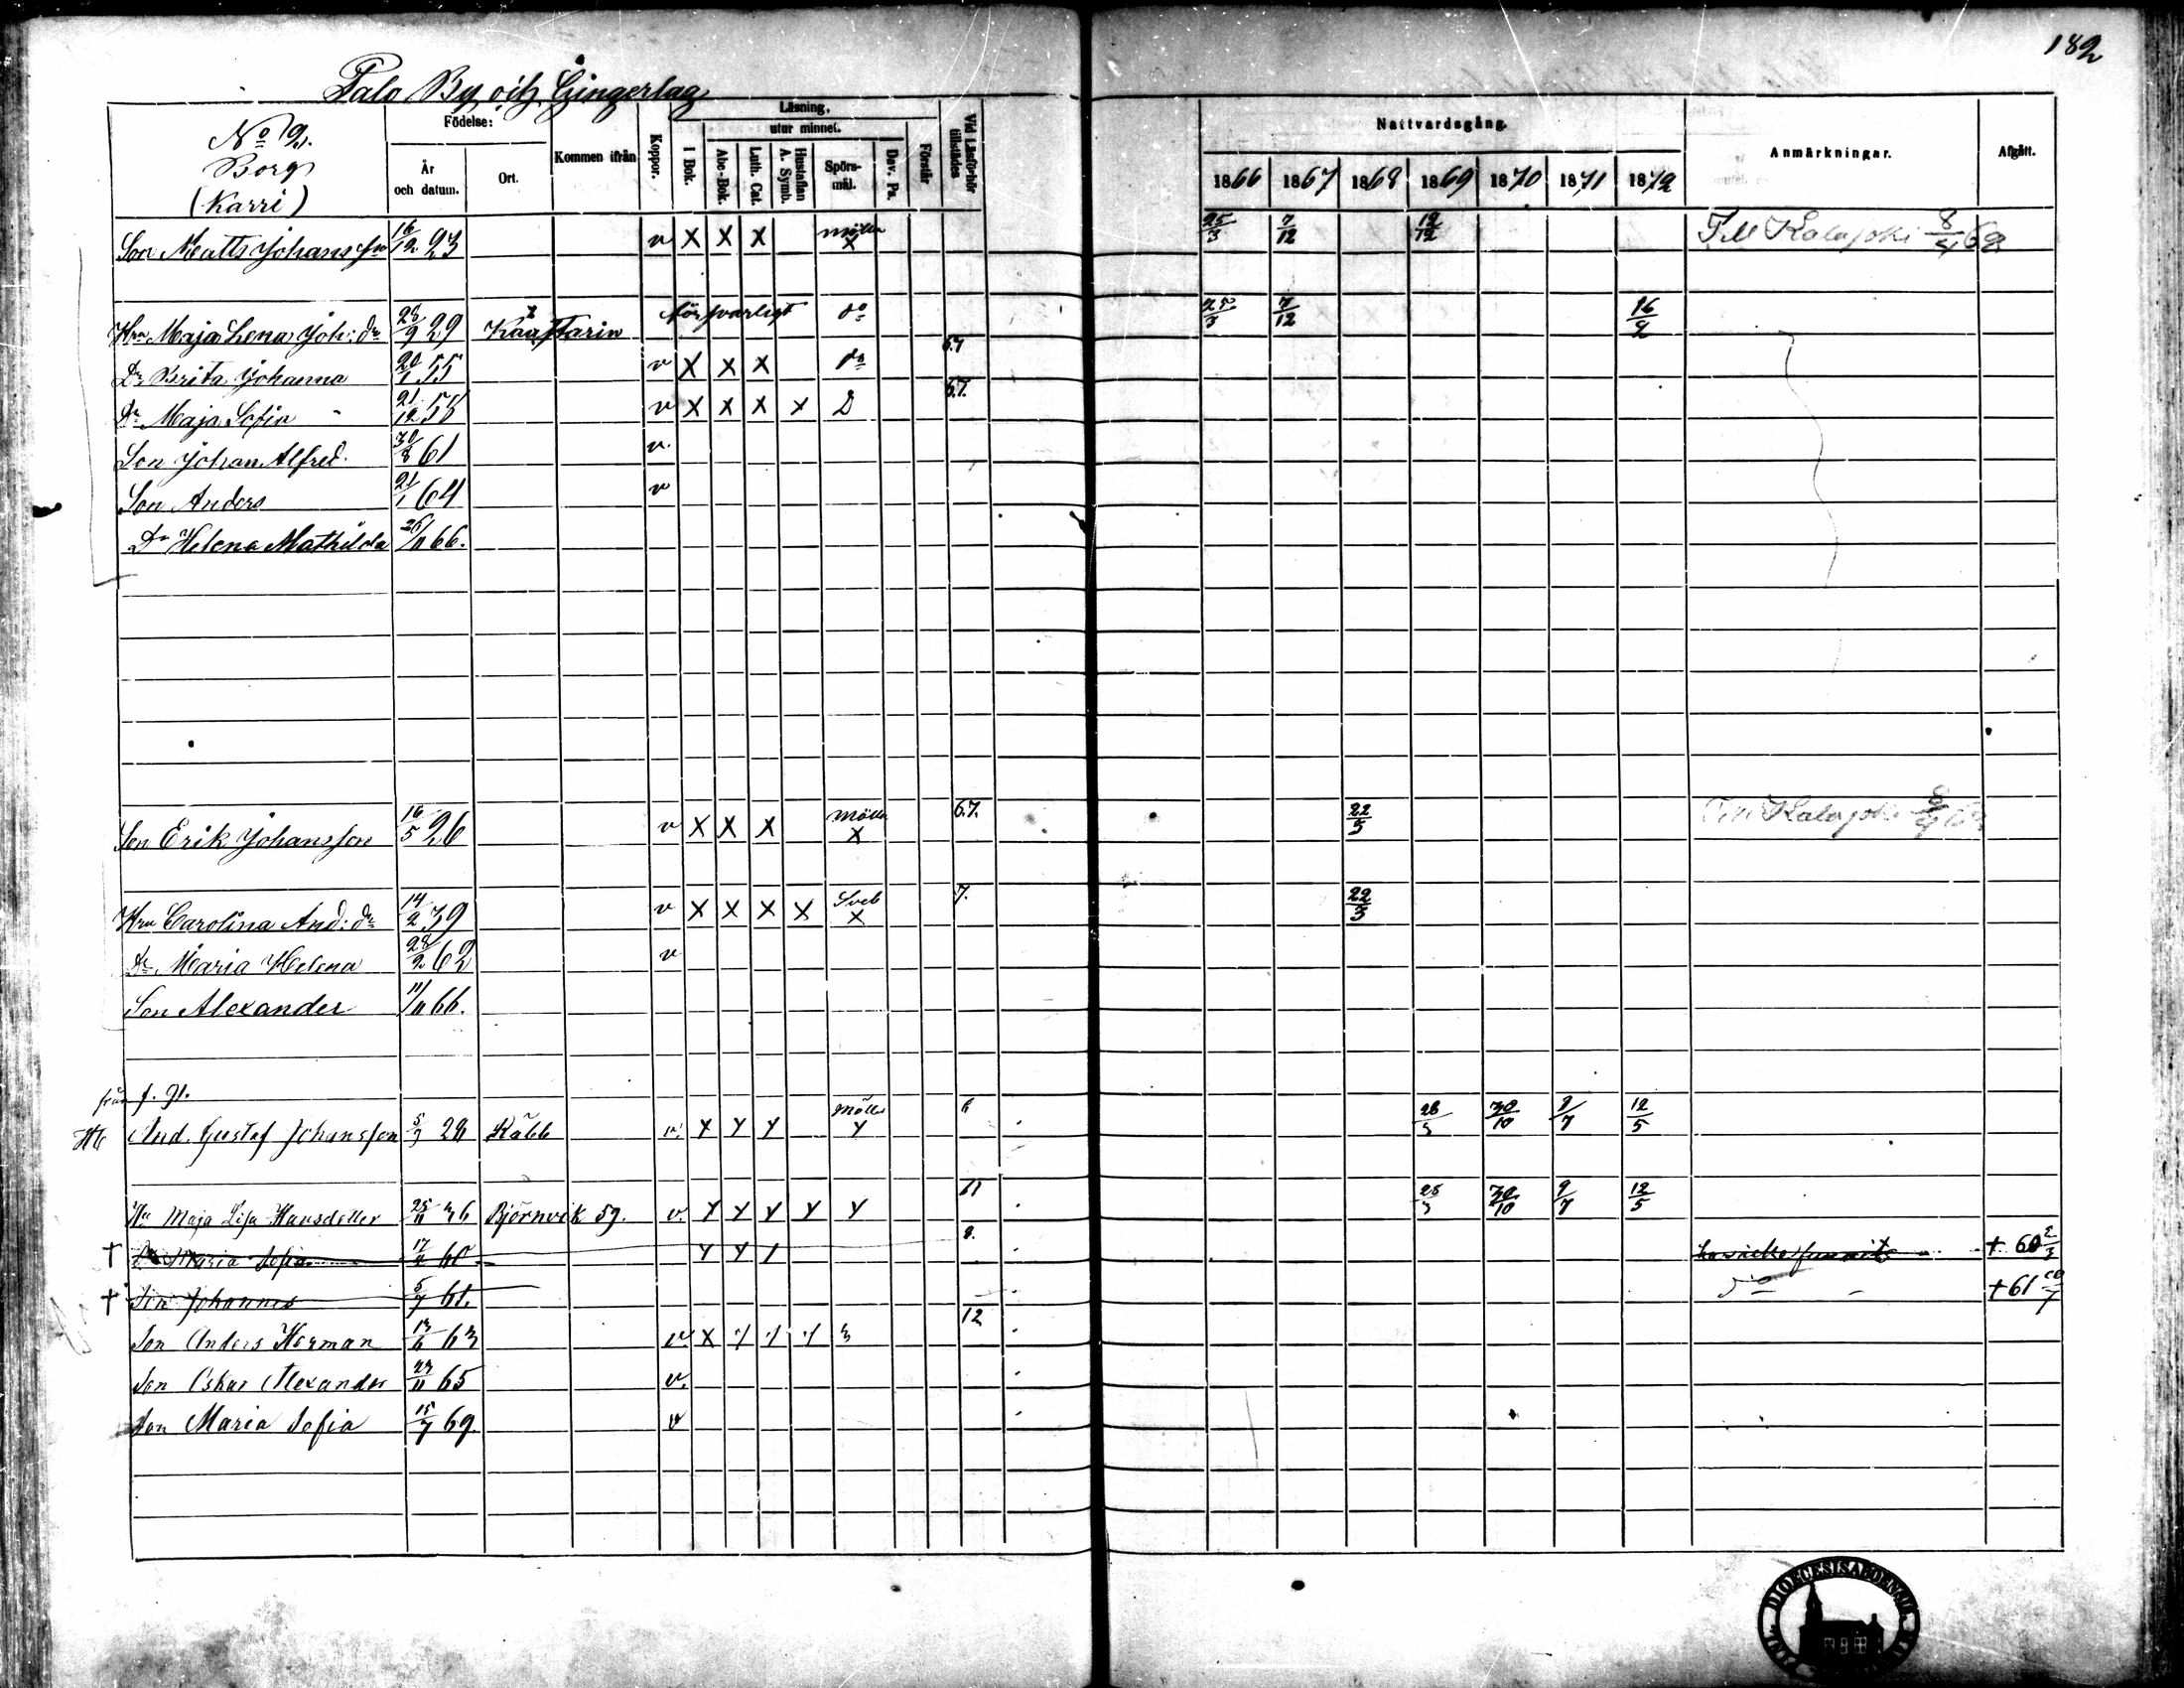 182
Palo By och Gingerlag
No 9.
Borg
(Karri)
Födelse:
År och datum.
Ort.
Kommen ifrån
Koppor.
Läsning.
I Bok.
utur minnet.
Abc-Bok.
Luth. Cat.
Hustaflan A. Symb.
Spörsmål.
Dav. Ps.
Förstår
Vid Läsförhör tillstädes
Nattvardsgång.
1866 1867 1868 1869 1870 1871 1872
Anmärkningar.
Afgått.
Son Matts Johansson 16/12 23 v X X X X 25/3 7/12 12/12 Till Kalajoki 8/4 69
Hru Maja Lena Joh: dr 28/9 29 Kaustarin försvarligt do 25/3 7/12 16/2
Dr Brita Johanna 20/1 55 v X X X do 67
Dr Maja Sofia 21/12 55 v X X X X D 67.
Son Johan Alfred 30/8 61 v.
Son Anders 21/1 64 v
Dr Helena Mathilda 26/11 66.
Son Erik Johansson 16/5 26 v X X X X 67. 22/3 Till Kalajoki 8/4
Hru Carolina And: dr 14/2 39 v X X X X Sveb X 7. 22/3
Dr Maria Helena 28/2 62 v
Son Alexander 11/11 66.
från f. 91.
And. Gustaf Johansson 5/9 28 Kåbb v. X X X X 6 28/3 30/10 9/7 12/5
Hu Maja Lisa Hansdotter 25/11 36 Björnvik 59. v. X X X X X 61 28/3 30/10 9/7 12/5
† Dr Maria Sofia 60 8. † 60 2/3
† Son Johannes 5/7 61. do † 61
Son Anders Herman 13/6 63 v. X 3 12
Son Oskar Alexander 23/11 65 v.
Maria Sofia 15/7 69. v
DIOECESIS ABOENSIS